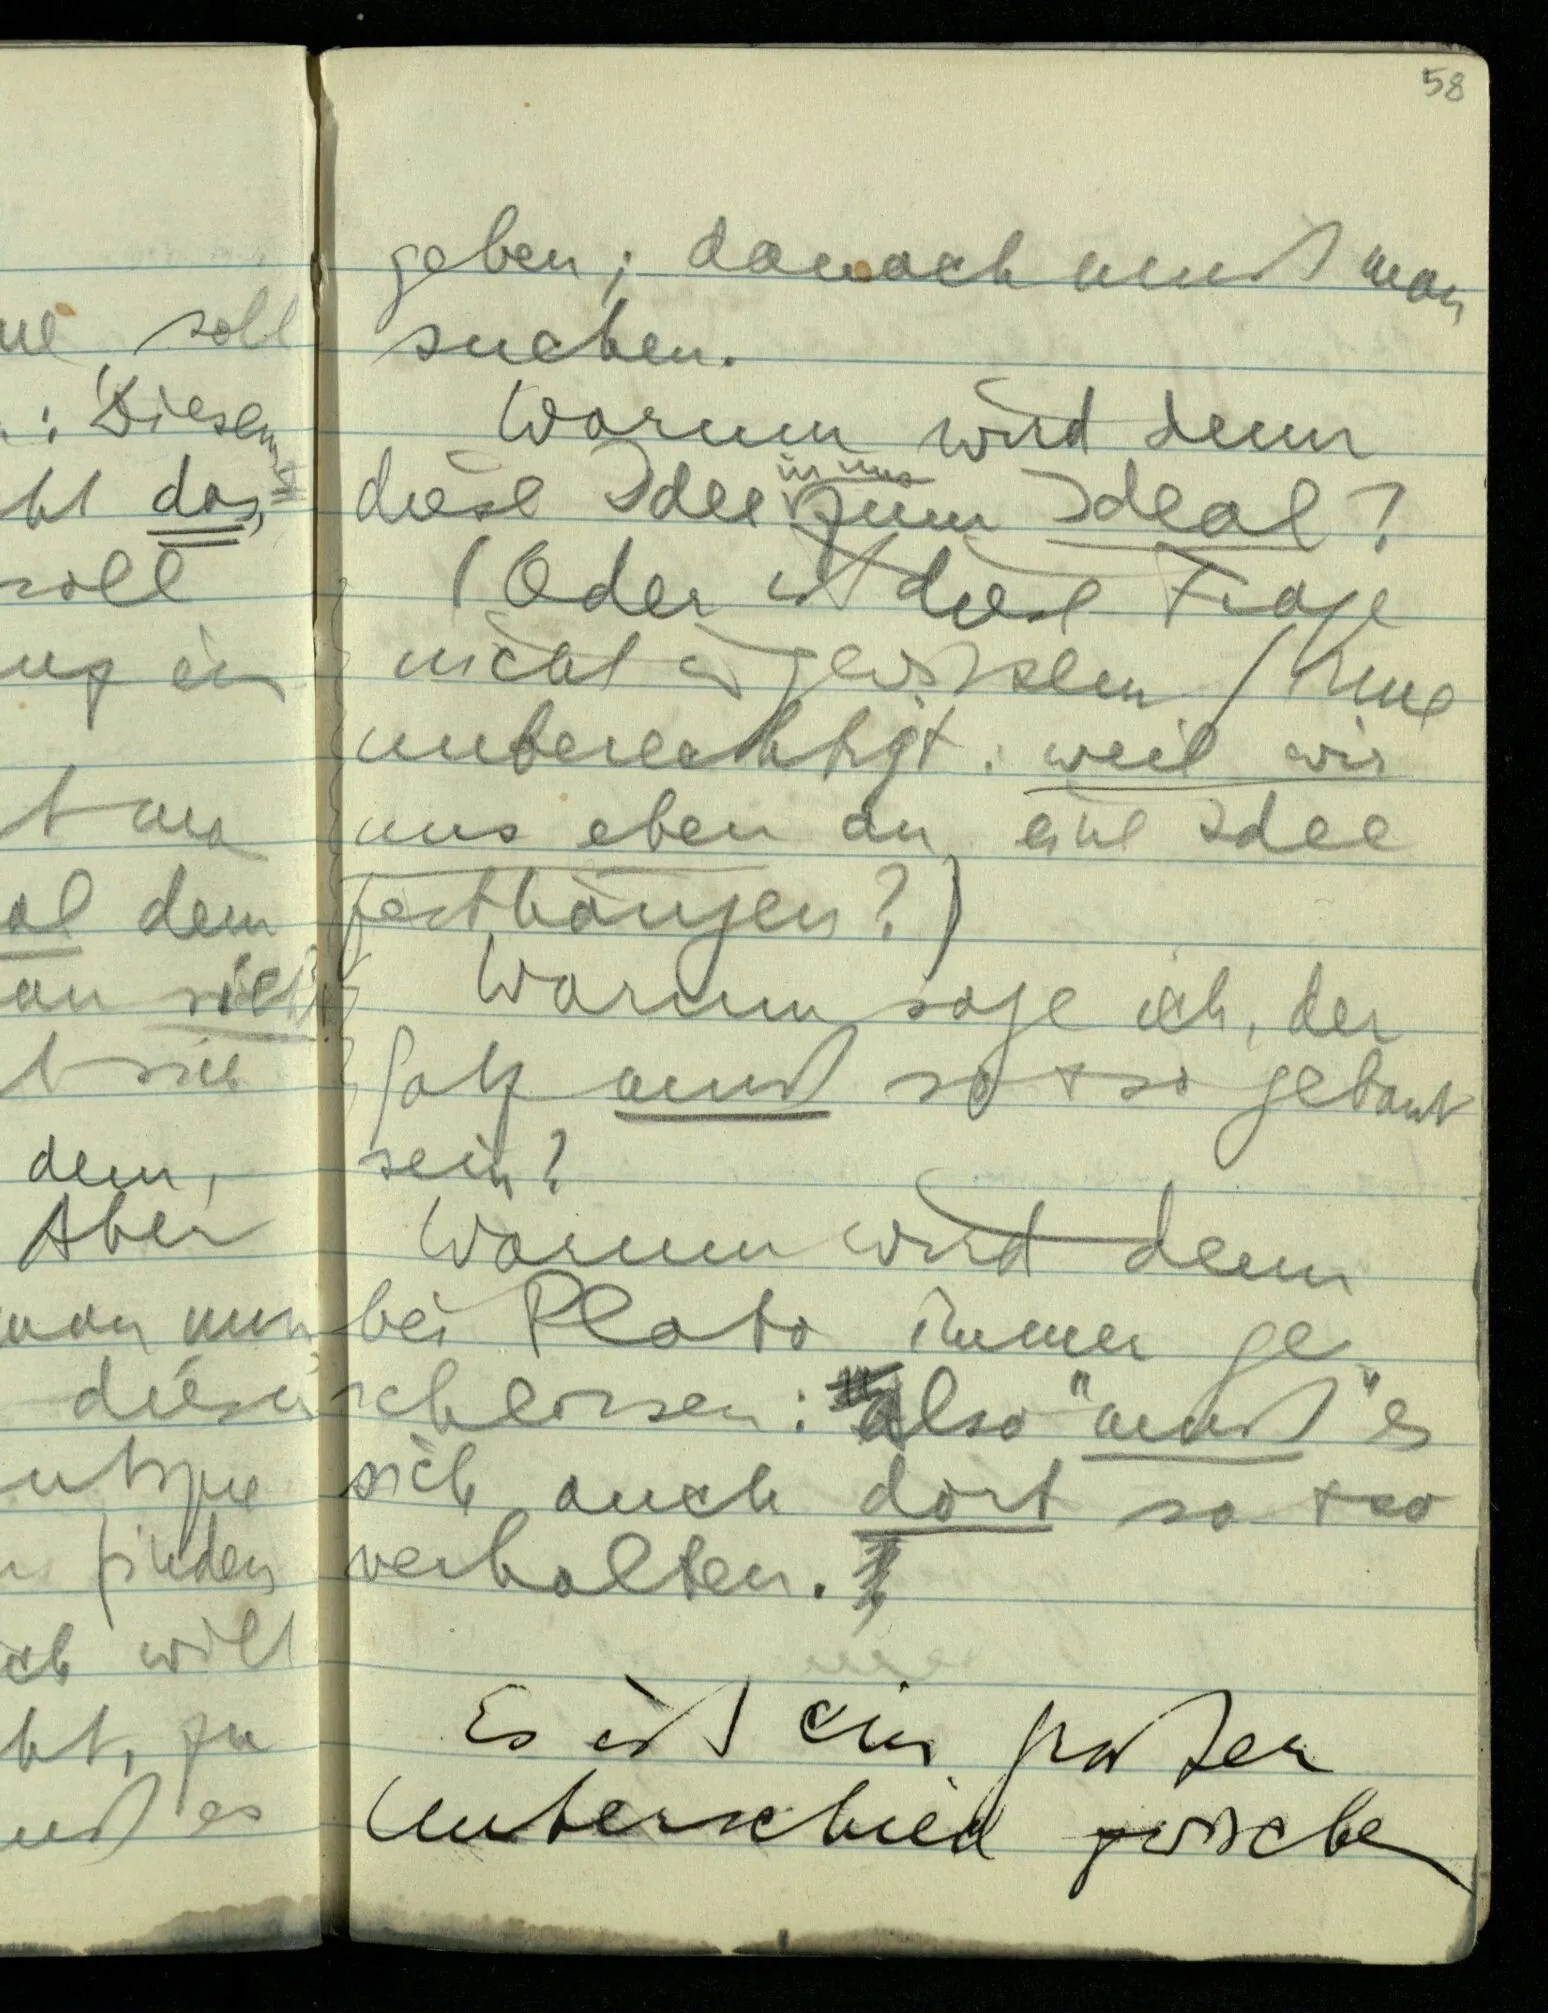 58
geben; danach muß man
suchen.
Warum wird denn
diese Idee in uns zum Ideal?
(Oder ist diese Frage
nicht in gewissem Sinne
unberechtigt: weil wir
uns eben an eine Idee
festhängen?)
Warum sage ich, der
Satz muß so + so gebaut
sein?
Warum wird denn
bei Plato immer ge
schlossen: also "muß" es
sich auch dort so + so
verhalten.
Es ist ein großer
Unterschied zwischen
soll
: Diesem
das,
soll
ein
dem
sich
dem,
Aber
man nun
diesen
finden
ich will
zu
muß es